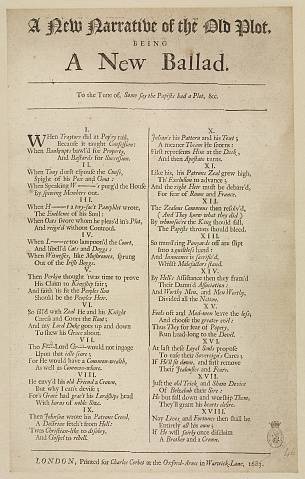 A New Narrative of the Old Plot,
BEING
A New Ballad.
To the Tune of, Some say the Papists had a Plot, &c.
I.
WHen Traytors did at Popery rail,
Because it taught Confession:
When Bankrupts bawl'd for Property,
And Bastards for Succession.
II.
When Tony durst espouse the Cause,
Spight of his Pox and Gout:
When Speaking W——'s purg'd the House
By spewing Members out.
III.
When H——t's Pamphlet wrote,
The Emblem of his Soul:
When Oats swore whom he pleas'd in's Plot,
And reign'd without Controul.
IV.
When L——ce too lampoon'd the Court,
And libell'd Cats and Doggs:
When Witnesses, like Mushromes, sprung
Out of the Irish Boggs.
V.
Then Perkin thought 'twas time to prove
His Claim to Kingship fair;
And faith 'tis fit the Peoples Son
Should be the Peoples Heir.
VI.
So fill'd with Zeal He and his Knight
Caress and Court the Rout;
And my Lord Duke goes up and down
To shew his Grace about.
VII.
Tho Lord would not engage
Upon that idle score;
For He would have a Common-wealth,
As well as Common-whore.
VIII.
He envy'd his old Friend a Crown,
But why I can't devise;
For's Grace had grac't his Lordships head
With horns of noble size.
IX.
Then Johnson wrote his Patrons Creed,
A Doctrine fetch't from Hell:
Twas Christian-like to disobey,
And Gospel to rebell.
X.
Julian's his Pattern and his Text;
A meaner Theam he scorns:
First represents Him at the Desk,
And then Apostate turns.
XI.
Like his, his Patrons Zeal grew high,
Th' Exclusion to advance;
And the right Heir must be debarr'd,
For fear of Rome and France.
XII.
The Zealous Commons then resolv'd,
(And They knew what they did)
By whomsoe're the King should fall,
The Papists throats should bleed.
XIII.
So murd'ring Ponyards oft are slipt
Into a guiltless hand:
And Innocence is Sacrific'd,
Whilst Malefactors stand.
XIV.
By Hell's Assistance then they fram'd
Their Damn'd Association:
And Worthy Men, and Men Worthy,
Divided all the Nation.
XV.
Fools oft and Mad-men leave the best,
And choose the greater evil:
Thus They for fear of Popery,
Run head-long to the Devil.
XVI.
At last these Loyal Souls propose
To ease their Sovereign's Cares;
If He'll sit down, and first remove
Their Jealousies and Fears.
XVII.
Just the old Trick and Sham Device
Of Belzebub their Sire:
He but fall down and worship Them,
They'll grant his hearts desire.
XVIII.
Nay Lives and Fortunes then shall be
Entirely all his own;
If He will fairly once disclaim
A Brother and a Crown.
LONDON, Printed for Charles Corbet at the Oxford-Arms in Warwick-Lane, 1683.